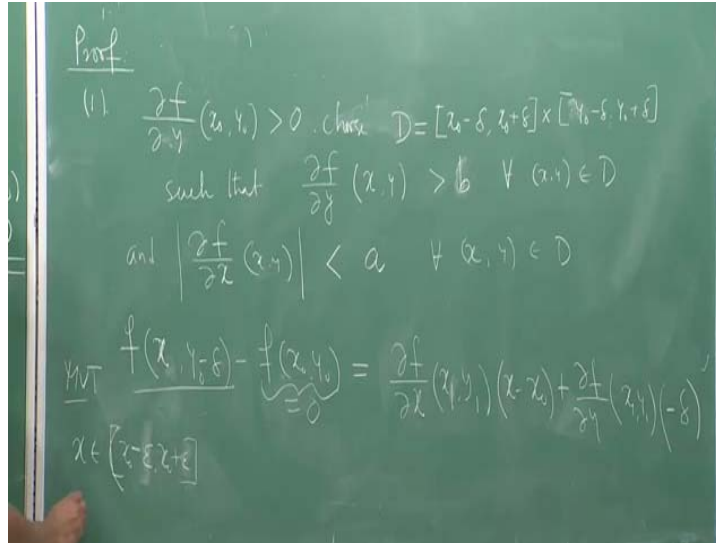 Proof.
(1). ∂f/∂y (x₀, y₀) > 0. chose D = [x₀-δ, x₀+δ] × [y₀-δ, y₀+δ]
such that ∂f/∂y (x, y) > b ∀ (x, y) ∈ D
and |∂f/∂x (x, y)| < a ∀ (x, y) ∈ D
MVT f(x, y₀-δ) - f(x₀, y₀) = ∂f/∂x (x₁, y₁)(x-x₀) + ∂f/∂y (x₁, y₁)(-δ)
= 0
x ∈ [x₀-ε, x₀+ε]